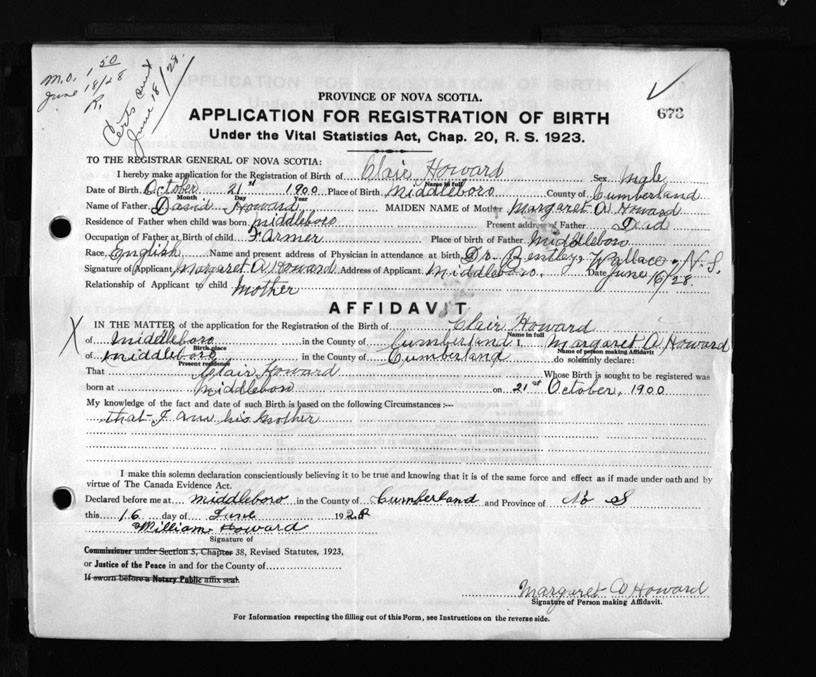 M.O. 1.50
June 18/28
R.
Certs send
June 18/28.
673
PROVINCE OF NOVA SCOTIA.
APPLICATION FOR REGISTRATION OF BIRTH
Under the Vital Statistics Act, Chap. 20, R. S. 1923.
TO THE REGISTRAR GENERAL OF NOVA SCOTIA:
I hereby make application for the Registration of Birth of Clair Howard Sex Male
Name in full
Date of Birth October 21st 1900 Place of Birth Middleboro County of Cumberland
Month Day Year
Name of Father David Howard MAIDEN NAME of Mother Margaret A Howard
Residence of Father when child was born middleboro Present address of Father Dead
Occupation of Father at Birth of child Farmer Place of birth of Father Middleboro
Race English Name and present address of Physician in attendance at birth Dr. Bentley, Wallace, N.S.
Signature of Applicant Margaret A Howard Address of Applicant Middleboro. Date June 16/28
Relationship of Applicant to child Mother
AFFIDAVIT
IN THE MATTER of the application for the Registration of the Birth of Clair Howard
Name in full
of Middleboro in the County of Cumberland I, Margaret A Howard
Birth place Name of person making Affidavit
of Middleboro in the County of Cumberland do solemnly declare:
Present residence
That Clair Howard Whose Birth is sought to be registered was
born at Middleboro on 21st October, 1900
My knowledge of the fact and date of such Birth is based on the following Circumstances :—
that I am his Mother
I make this solemn declaration conscientiously believing it to be true and knowing that it is of the same force and effect as if made under oath and by
virtue of The Canada Evidence Act.
Declared before me at Middleboro in the County of Cumberland and Province of No S
this 16 day of June 1928
William Howard
Signature of
Commissioner under Section 5, Chapter 38, Revised Statutes, 1923,
or Justice of the Peace in and for the County of
If sworn before a Notary Public affix seal.
Margaret A Howard
Signature of Person making Affidavit.
For Information respecting the filling out of this Form, see Instructions on the reverse side.